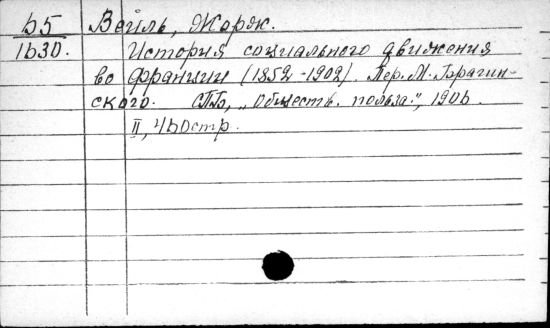 Б5 Вейль, Жорж.
1630. История социального движения
во Франции (1852-1902). Пер. М. Брагин-
ского. СПБ, „Обществ. польза", 1906.
II, 460 стр.